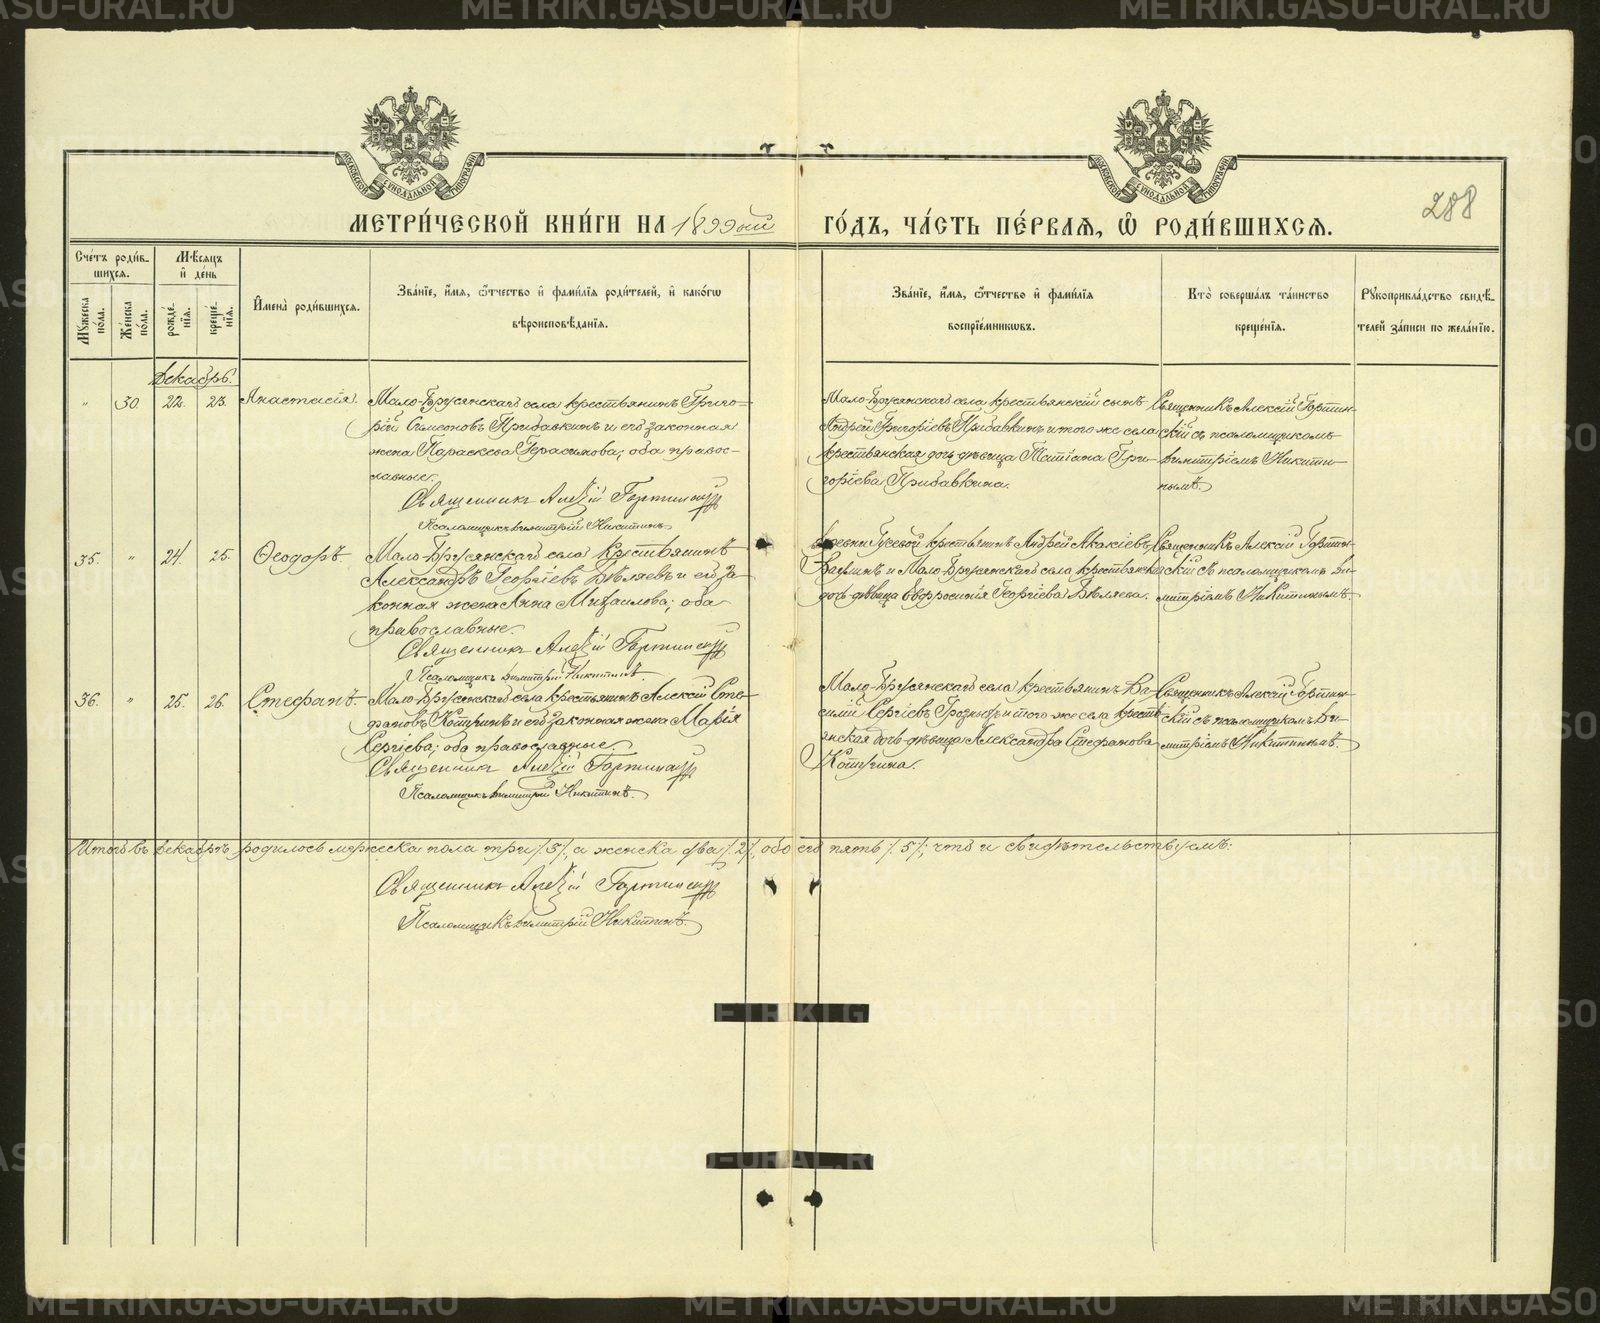 МЕТРИ́ЧЕСКОЙ КНИ́ГИ НА 1899ый ГО́ДЪ, ЧА́СТЬ ПЕ́РВАѦ, Ѡ҆ РОДИ́ВШИХСѦ.
288
Сче́тъ роди́в-
шихся.
Мꙋ́жеска по́ла.
Же́нска по́ла.
Мѣ́сяцъ и҆ де́нь
рожде́нїя.
креще́нїя.
И҆мена̀ роди́вшихся.
Зва́нїе, и҆́мя, ѻ҆́тчество и҆ фами́лїя роди́телей, и҆ како́гѡ
вѣроисповѣ́данїя.
Зва́нїе, и҆́мя, ѻ҆́тчество и҆ фами́лїя
воспрїе́мникѡвъ.
Кто̀ соверша́лъ та́инство
креще́нїя.
Рꙋкоприкла́дство свидѣ́-
телей за́писи по жела́нїю.
Декабрь.
" 30. 22. 23. Анастасія.
Мало-Брусянскаго села крестьянинъ Григо-
рій Симеоновъ Прибавкинъ и его законная
жена Параскева Герасимова; оба правос-
лавные.
Священникъ Алексій
Псаломщикъ Димитрій Никитинъ
Мало-Брусянскаго села крестьянскій сынъ
Андрей Григоріевъ Прибавкинъ и того же села
крестьянская дочь дѣвица Татіана Гри-
горіева Прибавкина.
Священникъ Алексій
скій съ псаломщикомъ
Димитріемъ Никити-
нымъ.
35. " 24. 25. Ѳеодоръ.
Мало-Брусянскаго села крестьянинъ
Александръ Георгіевъ Бѣляевъ и его за-
конная жена Анна Михаилова; оба
православные.
Священникъ Алексій
Псаломщикъ Димитрій Никитинъ.
Деревни Гусевой крестьянинъ Андрей Акакіевъ
и Мало-Брусянскаго села крестьянская
дочь дѣвица Евфросинія Георгіева Бѣляева.
Священникъ Алексій
скій съ псаломщикомъ Ди-
митріемъ Никитинымъ.
36. " 25. 26. Стефанъ.
Мало-Брусянскаго села крестьянинъ Алексій Сте-
фановъ и его законная жена Марія
Сергіева; оба православные.
Священникъ Алексій
Псаломщикъ Димитрій Никитинъ.
Мало-Брусянскаго села крестьянинъ Ва-
силій Сергіевъ и того же села кресть-
янская дочь дѣвица Александра Стефанова
Священникъ Алексій
скій съ псаломщикомъ Ди-
митріемъ Никитинымъ.
Итого въ Декабрѣ родилось мужеска пола три /. 3 /., а женска два /. 2 /., обоего пять /. 5 /.; что и свидѣтельствуемъ:
Священникъ Алексій
Псаломщикъ Димитрій Никитинъ.
METRIKI.GASO-URAL.RU